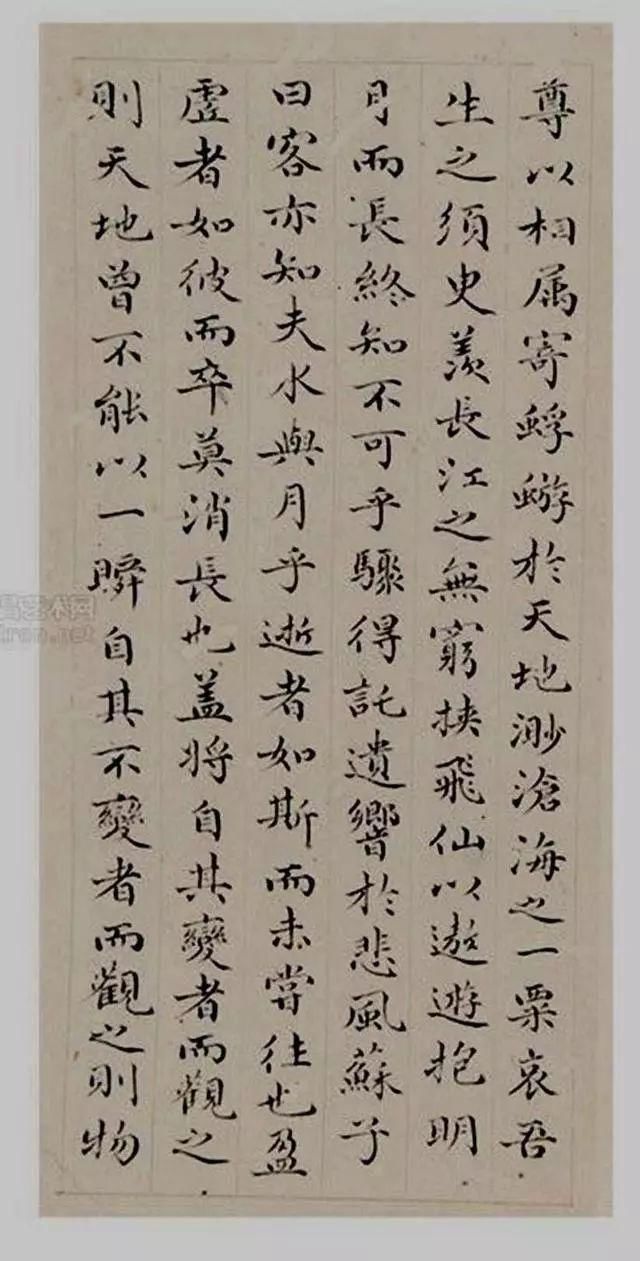 尊以相属寄蜉蝣於天地渺滄海之一粟哀吾
生之須臾羨長江之無窮挟飛仙以遨遊抱明
月而長終知不可乎驟得託遺響於悲風蘇子
曰客亦知夫水與月乎逝者如斯而未嘗往也盈
虛者如彼而卒莫消長也盖將自其變者而觀之
則天地曾不能以一瞬自其不變者而觀之則物
艺术网
.net